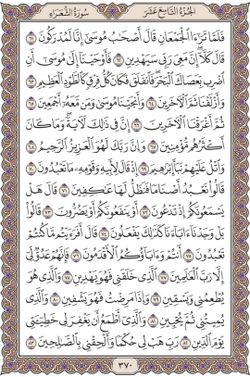 الجزء التاسع عشر سورة الشعراء
فلما تراءا الجمعان قال أصحاب موسى إنا لمدركون ٦١
قال كلا إن معي ربي سيهدين ٦٢ فأوحينا إلى موسى أن
اضرب بعصاك البحر فانفلق فكان كل فرق كالطود العظيم ٦٣
وأزلفنا ثم الآخرين ٦٤ وأنجينا موسى ومن معه أجمعين ٦٥
ثم أغرقنا الآخرين ٦٦ إن في ذلك لآية وما كان
أكثرهم مؤمنين ٦٧ وإن ربك لهو العزيز الرحيم ٦٨
واتل عليهم نبأ إبراهيم ٦٩ إذ قال لأبيه وقومه ما تعبدون ٧٠
قالوا نعبد أصناما فنظل لها عاكفين ٧١ قال هل
يسمعونكم إذ تدعون ٧٢ أو ينفعونكم أو يضرون ٧٣ قالوا
بل وجدنا آباءنا كذلك يفعلون ٧٤ قال أفرأيتم ما كنتم
تعبدون ٧٥ أنتم وآباؤكم الأقدمون ٧٦ فإنهم عدو لي
إلا رب العالمين ٧٧ الذي خلقني فهو يهدين ٧٨ والذي هو
يطعمني ويسقين ٧٩ وإذا مرضت فهو يشفين ٨٠ والذي
يميتني ثم يحيين ٨١ والذي أطمع أن يغفر لي خطيئتي
يوم الدين ٨٢ رب هب لي حكما وألحقني بالصالحين ٨٣
٣٧٠